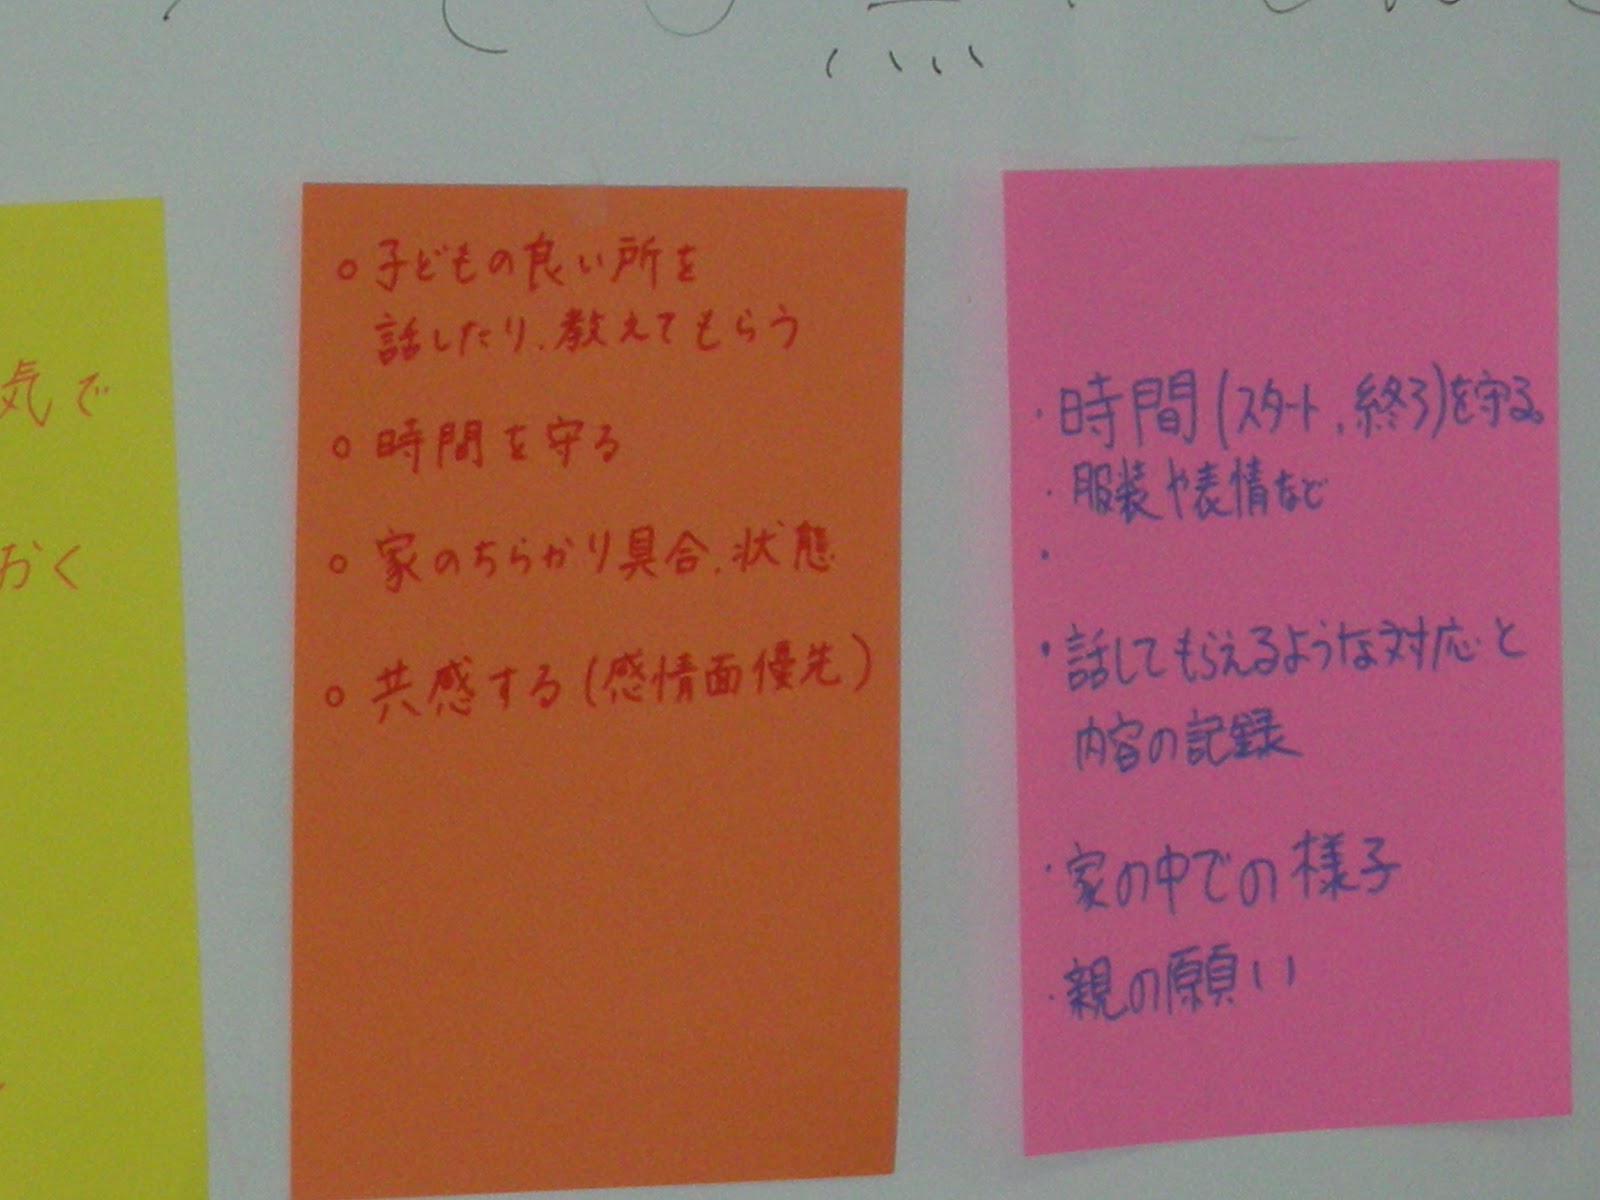 気で
おく
○ 子どもの良い所を
話したり、教えてもらう
○ 時間を守る
○ 家のちらかり具合、状態
○ 共感する(感情面優先)
・時間(スタート、終了)を守る。
・服装や表情など
・
・話してもらえるような対応と
内容の記録
・家の中での様子
・親の願い